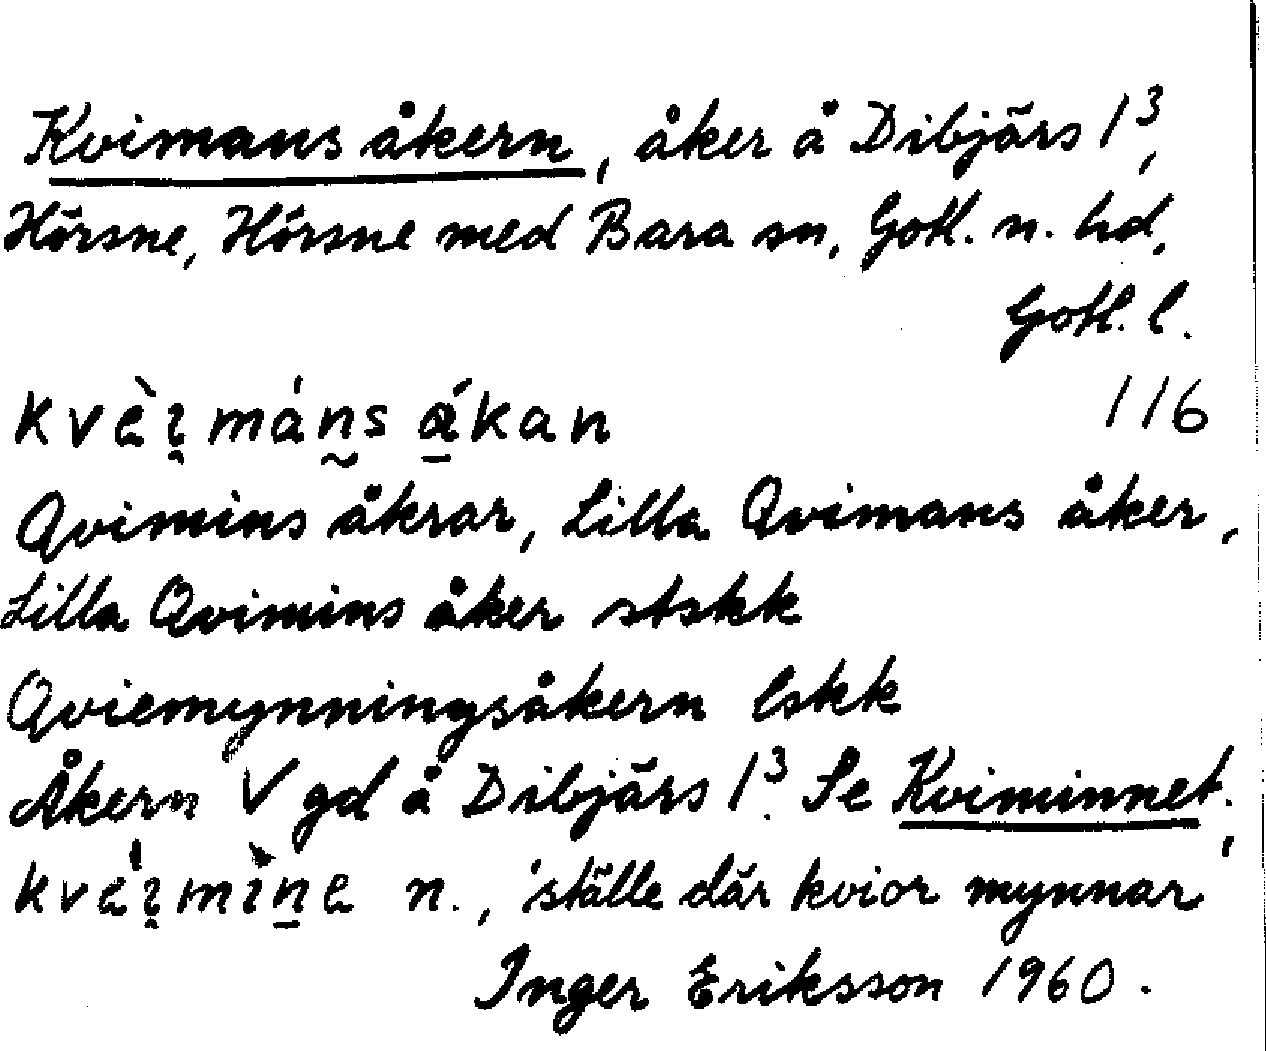 Kvimans åkern, åker å Dibjärs 1³,
Hörsne, Hörsne med Bara sn, Gotl. n. hd,
Gotl. l.
kvèi̯máns ákan 116
Qvimins åkrar, Lilla Qvimans åker,
Lilla Qvimins åker stskk
Qviemynningsåkern lskk
Åkern V gd å Dibjärs 1³. Se Kviminnet.
kvéi̯mìne n., 'ställe där kvior mynnar'
Inger Eriksson 1960.